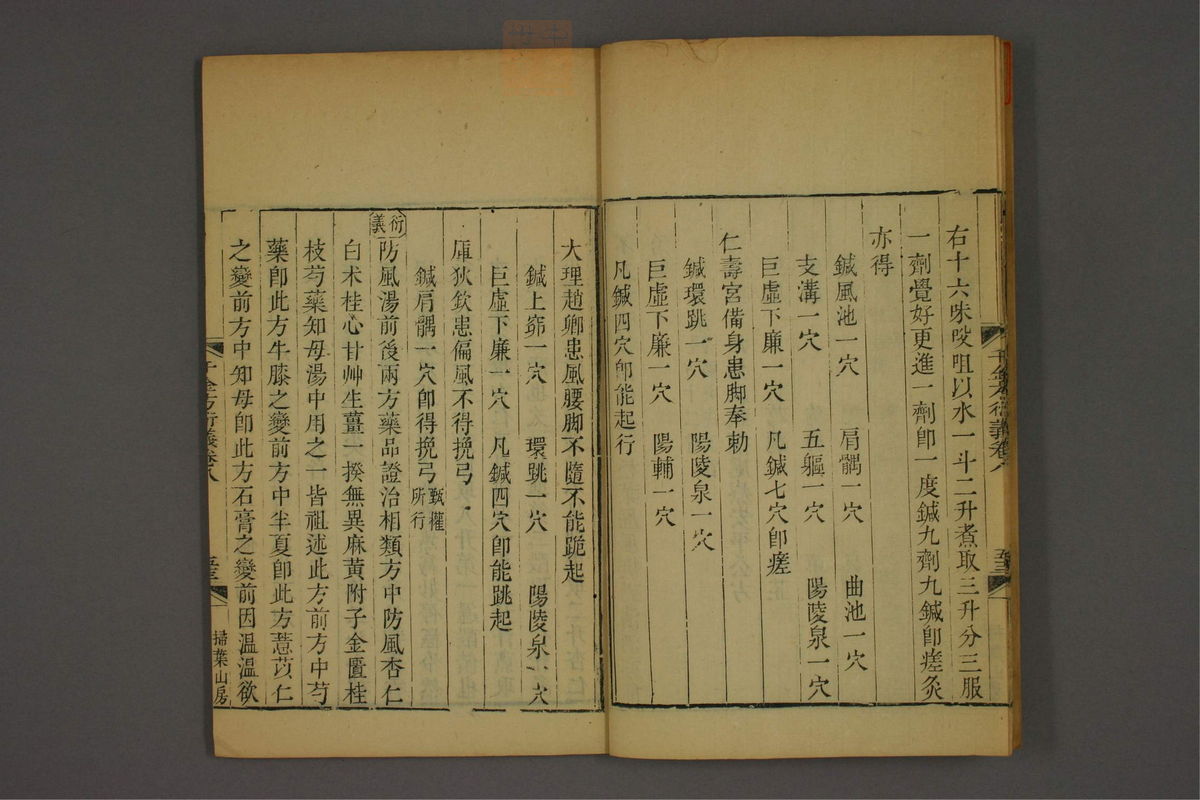 右十六味㕮咀以水一斗二升煮取三升分三服
一劑覺好更進一劑卽一度鍼九劑九鍼卽瘥灸
亦得
鍼風池一穴 肩髃一穴 曲池一穴
支溝一穴 五軀一穴 陽陵泉一穴
巨虛下廉一穴 凡鍼七穴卽瘥
仁壽宮備身患脚奉勅
鍼環跳一穴 陽陵泉一穴
巨虛下廉一穴 陽輔一穴
凡鍼四穴卽能起行
大理趙卿患風腰脚不隨不能跪起
鍼上窌一穴 環跳一穴 陽陵泉一穴
巨虛下廉一穴 凡鍼四穴卽能跳起
庫狄欽患偏風不得挽弓
鍼肩髃一穴卽得挽弓甄權所行
衍義
防風湯前後兩方藥品證治相類方中防風杏仁
白朮桂心甘艸生薑一揆無異麻黃附子金匱桂
枝芍藥知母湯中用之一皆祖述此方前方中芍
藥卽此方牛膝之變前方中半夏卽此方薏苡仁
之變前方中知母卽此方石膏之變前因溫溫欲
千金方衍義卷八
掃葉山房